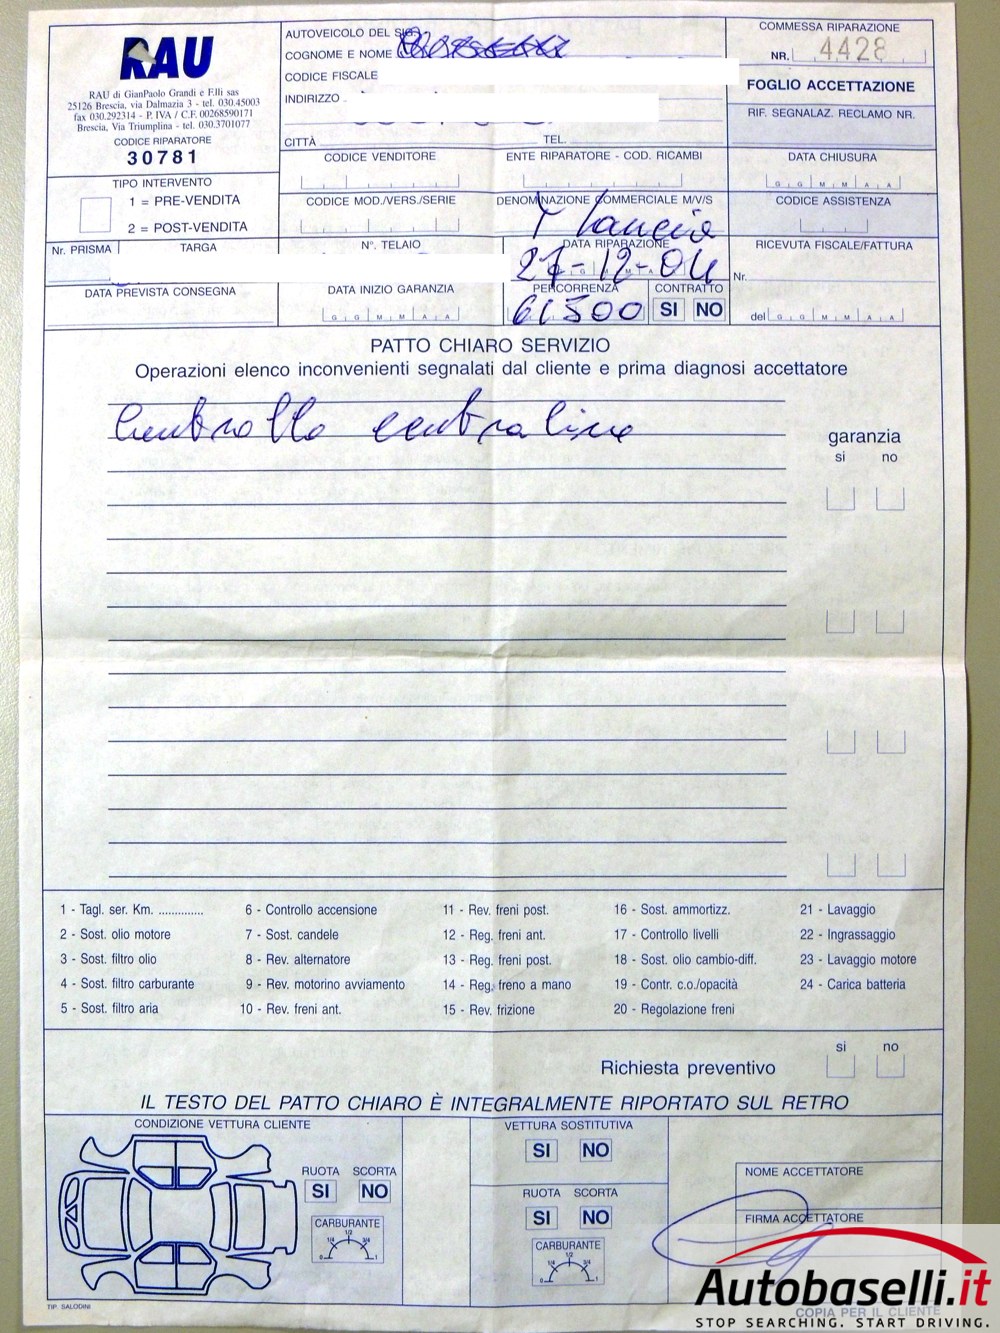 RAU
RAU di GianPaolo Grandi e F.lli sas
25126 Brescia, via Dalmazia 3 - tel. 030.45003
fax 030.292314 - P. IVA / C.F. 00268590171
Brescia, Via Triumplina - tel. 030.3701077
CODICE RIPARATORE
30781
AUTOVEICOLO DEL SIG.
COGNOME E NOME
CODICE FISCALE
INDIRIZZO
CITTÀ TEL.
COMMESSA RIPARAZIONE
NR. 4428
FOGLIO ACCETTAZIONE
RIF. SEGNALAZ. RECLAMO NR.
CODICE VENDITORE ENTE RIPARATORE - COD. RICAMBI DATA CHIUSURA
G G M M A A
TIPO INTERVENTO
1 = PRE-VENDITA
2 = POST-VENDITA
CODICE MOD./VERS./SERIE DENOMINAZIONE COMMERCIALE M/V/S CODICE ASSISTENZA
Y Lancia
Nr. PRISMA TARGA N°. TELAIO DATA RIPARAZIONE RICEVUTA FISCALE/FATTURA
27-12-04
Nr.
DATA PREVISTA CONSEGNA DATA INIZIO GARANZIA PERCORRENZA CONTRATTO
G G M M A A 61500 SI NO del G G M M A A
PATTO CHIARO SERVIZIO
Operazioni elenco inconvenienti segnalati dal cliente e prima diagnosi accettatore
Controllo centraline
garanzia
si no
1 - Tagl. ser. Km. .............. 6 - Controllo accensione 11 - Rev. freni post. 16 - Sost. ammortizz. 21 - Lavaggio
2 - Sost. olio motore 7 - Sost. candele 12 - Reg. freni ant. 17 - Controllo livelli 22 - Ingrassaggio
3 - Sost. filtro olio 8 - Rev. alternatore 13 - Reg. freni post. 18 - Sost. olio cambio-diff. 23 - Lavaggio motore
4 - Sost. filtro carburante 9 - Rev. motorino avviamento 14 - Reg. freno a mano 19 - Contr. c.o./opacità 24 - Carica batteria
5 - Sost. filtro aria 10 - Rev. freni ant. 15 - Rev. frizione 20 - Regolazione freni
si no
Richiesta preventivo
IL TESTO DEL PATTO CHIARO È INTEGRALMENTE RIPORTATO SUL RETRO
CONDIZIONE VETTURA CLIENTE
RUOTA SCORTA
SI NO
CARBURANTE
0 1/4 1/2 3/4 1
VETTURA SOSTITUTIVA
SI NO
RUOTA SCORTA
SI NO
CARBURANTE
0 1/4 1/2 3/4 1
NOME ACCETTATORE
FIRMA ACCETTATORE
TIP. SALODINI
COPIA PER IL CLIENTE
Autobaselli.it
STOP SEARCHING. START DRIVING.